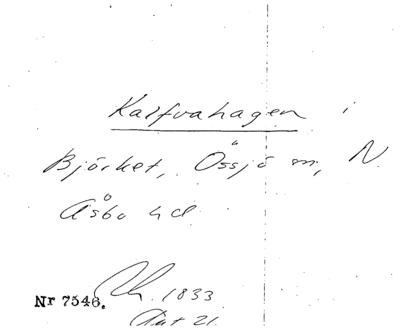 Kalfvahagen i
Björket, Össjö sn, N
Åsbo hd
Nr 7546. 1833